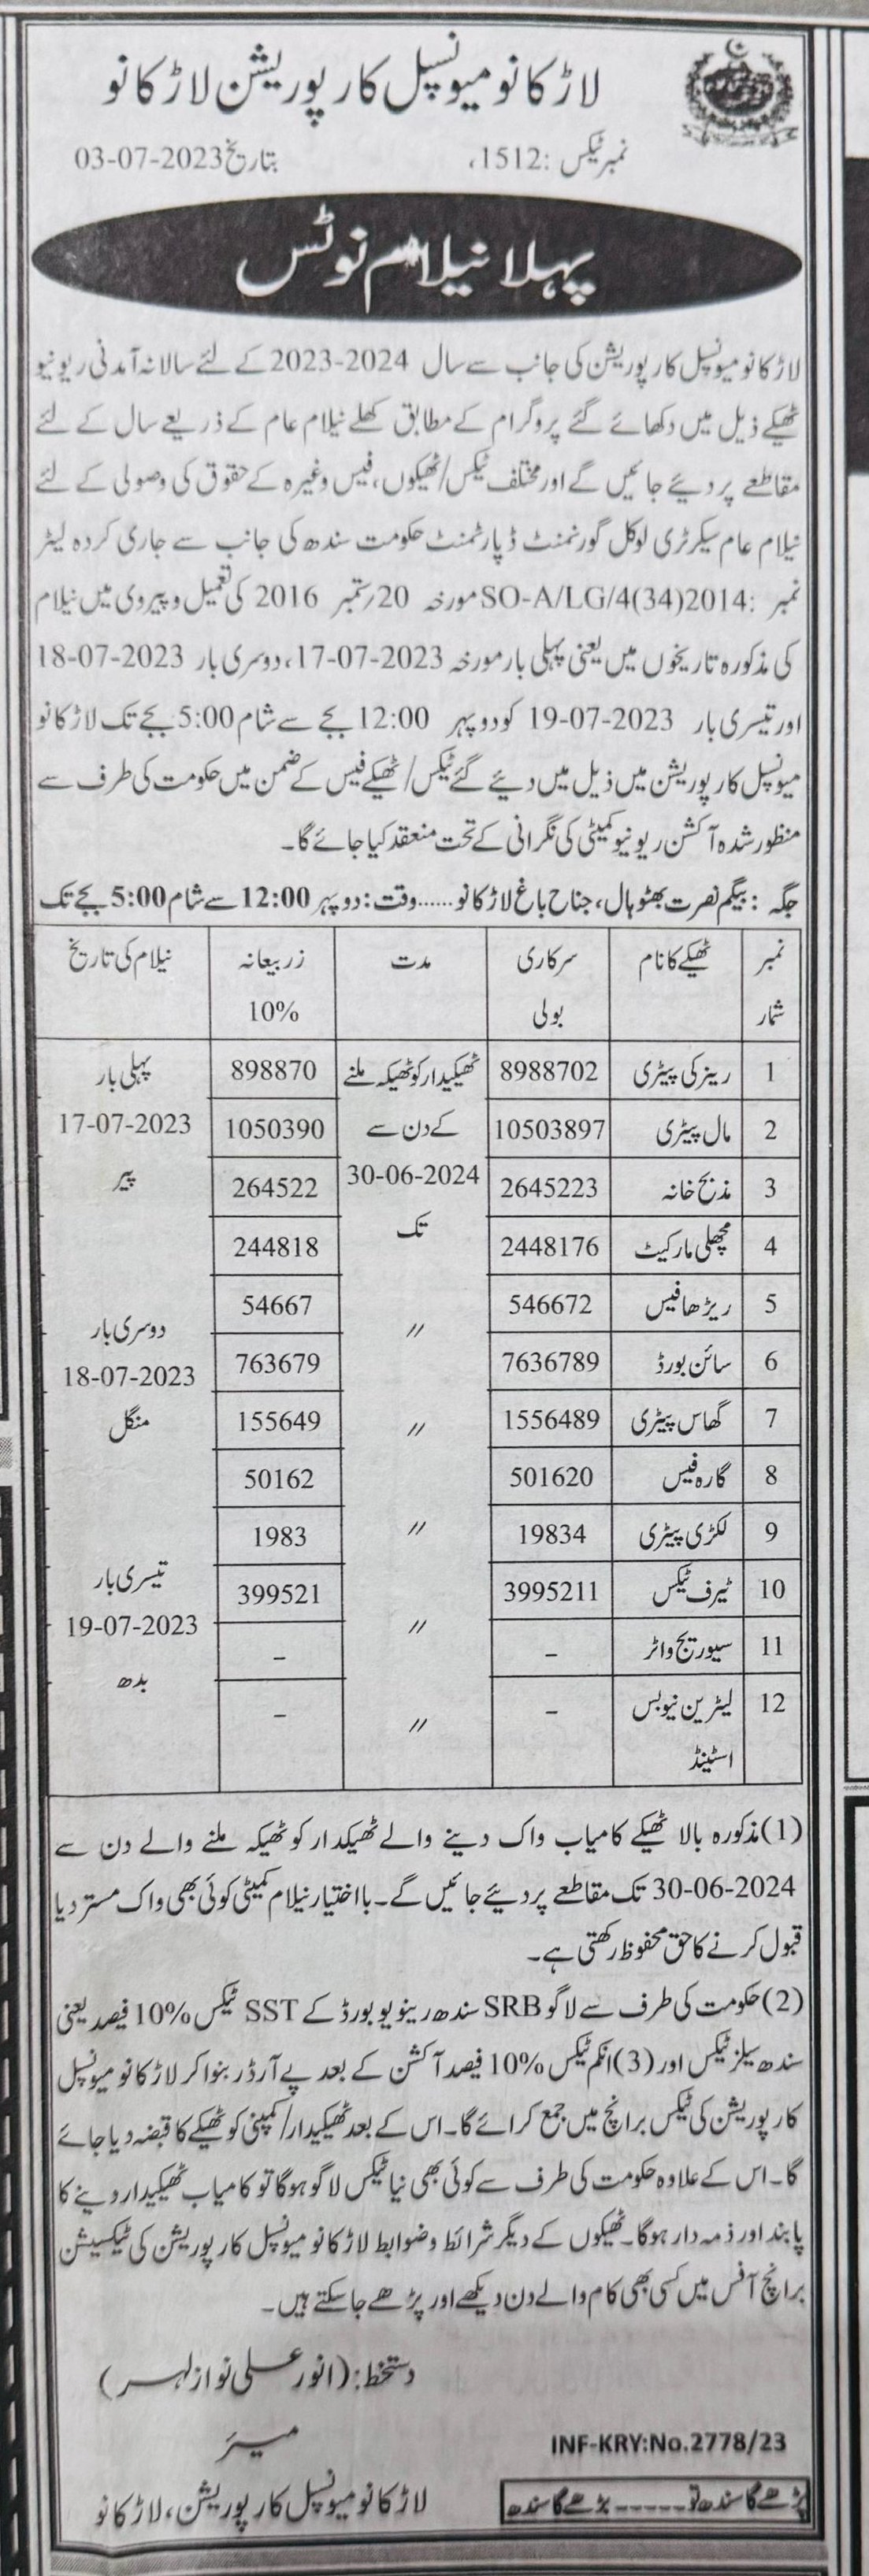 لاڑکانو میونسپل کارپوریشن لاڑکانو
نمبر ٹیکس :1512، بتاریخ 03-07-2023
پہلا نیلام نوٹس
لاڑکانو میونسپل کارپوریشن کی جانب سے سال 2023-2024 کے لئے سالانہ آمدنی ریونیو
ٹھیکے ذیل میں دکھائے گئے پروگرام کے مطابق کھلے نیلام عام کے ذریعے سال کے لئے
مقاطعے پر دیئے جائیں گے اور مختلف ٹیکس/ٹھیکوں، فیس وغیرہ کے حقوق کی وصولی کے لئے
نیلام عام سیکرٹری لوکل گورنمنٹ ڈپارٹمنٹ حکومت سندھ کی جانب سے جاری کردہ لیٹر
نمبر :SO-A/LG/4(34)2014 مورخہ 20/ستمبر 2016 کی تعمیل و پیروی میں نیلام
کی مذکورہ تاریخوں میں یعنی پہلی بار مورخہ 17-07-2023، دوسری بار 18-07-2023
اور تیسری بار 19-07-2023 کو دوپہر 12:00 بجے سے شام 5:00 بجے تک لاڑکانو
میونسپل کارپوریشن میں ذیل میں دیئے گئے ٹیکس/ٹھیکے فیس کے ضمن میں حکومت کی طرف سے
منظور شدہ آکشن ریونیو کمیٹی کی نگرانی کے تحت منعقد کیا جائے گا۔
جگہ : بیگم نصرت بھٹو ہال، جناح باغ لاڑکانو......وقت: دوپہر 12:00 سے شام 5:00 بجے تک
نمبر شمار ٹھیکے کا نام سرکاری بولی مدت زر بیعانہ 10% نیلام کی تاریخ
1 رینز کی پیڑی 8988702 ٹھیکیدار کو ٹھیکہ ملنے 898870 پہلی بار
2 مال پیڑی 10503897 کے دن سے 1050390 17-07-2023
3 مذبح خانہ 2645223 30-06-2024 264522 پیر
4 مچھلی مارکیٹ 2448176 تک 244818
5 ریڑھا فیس 546672 〃 54667 دوسری بار
6 سائن بورڈ 7636789 763679 18-07-2023
7 گھاس پیڑی 1556489 〃 155649 منگل
8 گارہ فیس 501620 50162
9 لکڑی پیڑی 19834 〃 1983
10 ٹیرف ٹیکس 3995211 399521 تیسری بار
11 سیوریج واٹر – 〃 – 19-07-2023
12 لیٹرین نیو بس – 〃 – بدھ
اسٹینڈ
(1) مذکورہ بالا ٹھیکے کامیاب واک دینے والے ٹھیکدار کو ٹھیکہ ملنے والے دن سے
30-06-2024 تک مقاطعے پر دیئے جائیں گے۔ با اختیار نیلام کمیٹی کوئی بھی واک مسترد یا
قبول کرنے کا حق محفوظ رکھتی ہے۔
(2) حکومت کی طرف سے لاگو SRB سندھ رینویو بورڈ کے SST ٹیکس 10% فیصد یعنی
سندھ سیلز ٹیکس اور (3) انکم ٹیکس 10% فیصد آکشن کے بعد پے آرڈر بنوا کر لاڑکانو میونسپل
کارپوریشن کی ٹیکس برانچ میں جمع کرائے گا۔ اس کے بعد ٹھیکیدار/کمپنی کو ٹھیکے کا قبضہ دیا جائے
گا۔ اس کے علاوہ حکومت کی طرف سے کوئی بھی نیا ٹیکس لاگو ہوگا تو کامیاب ٹھیکیدار دینے کا
پابند اور ذمہ دار ہوگا۔ ٹھیکوں کے دیگر شرائط و ضوابط لاڑکانو میونسپل کارپوریشن کی ٹیکسیشن
برانچ آفس میں کسی بھی کام والے دن دیکھے اور پڑھے جاسکتے ہیں۔
دستخط: (انور علی نواز لہر)
میئر
لاڑکانو میونسپل کارپوریشن، لاڑکانو
INF-KRY:No.2778/23
پڑھے گا سندھ تو-----بڑھے گا سندھ